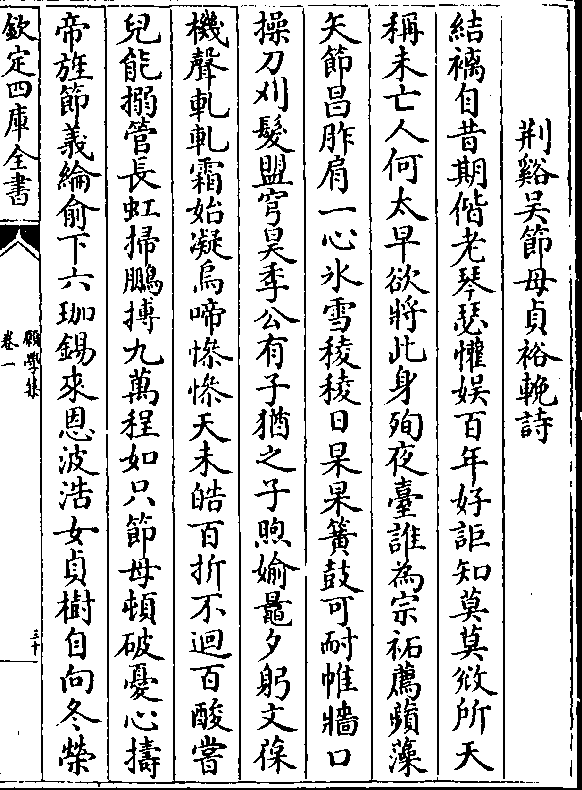 荆谿吳節母貞裕輓詩
結褵自昔期偕老琴瑟懽娛百年好詎知莫莫斂所天
稱未亡人何太早欲將此身殉夜臺誰為宗祏薦蘋藻
矢節昌胙肩一心氷雪稜稜日杲杲簧鼓可耐帷牆口
操刀刈髮盟穹昊季公有子猶之子煦媮鼂夕躬文葆
機聲軋軋霜始凝烏啼慘慘天未皓百折不迴百酸嘗
兒能搦管長虹掃鵬摶九萬程如只節母頓破憂心擣
帝旌節義綸俞下六珈錫來恩波浩女貞樹自向冬榮
欽定四庫全書
願學集
卷一
三十